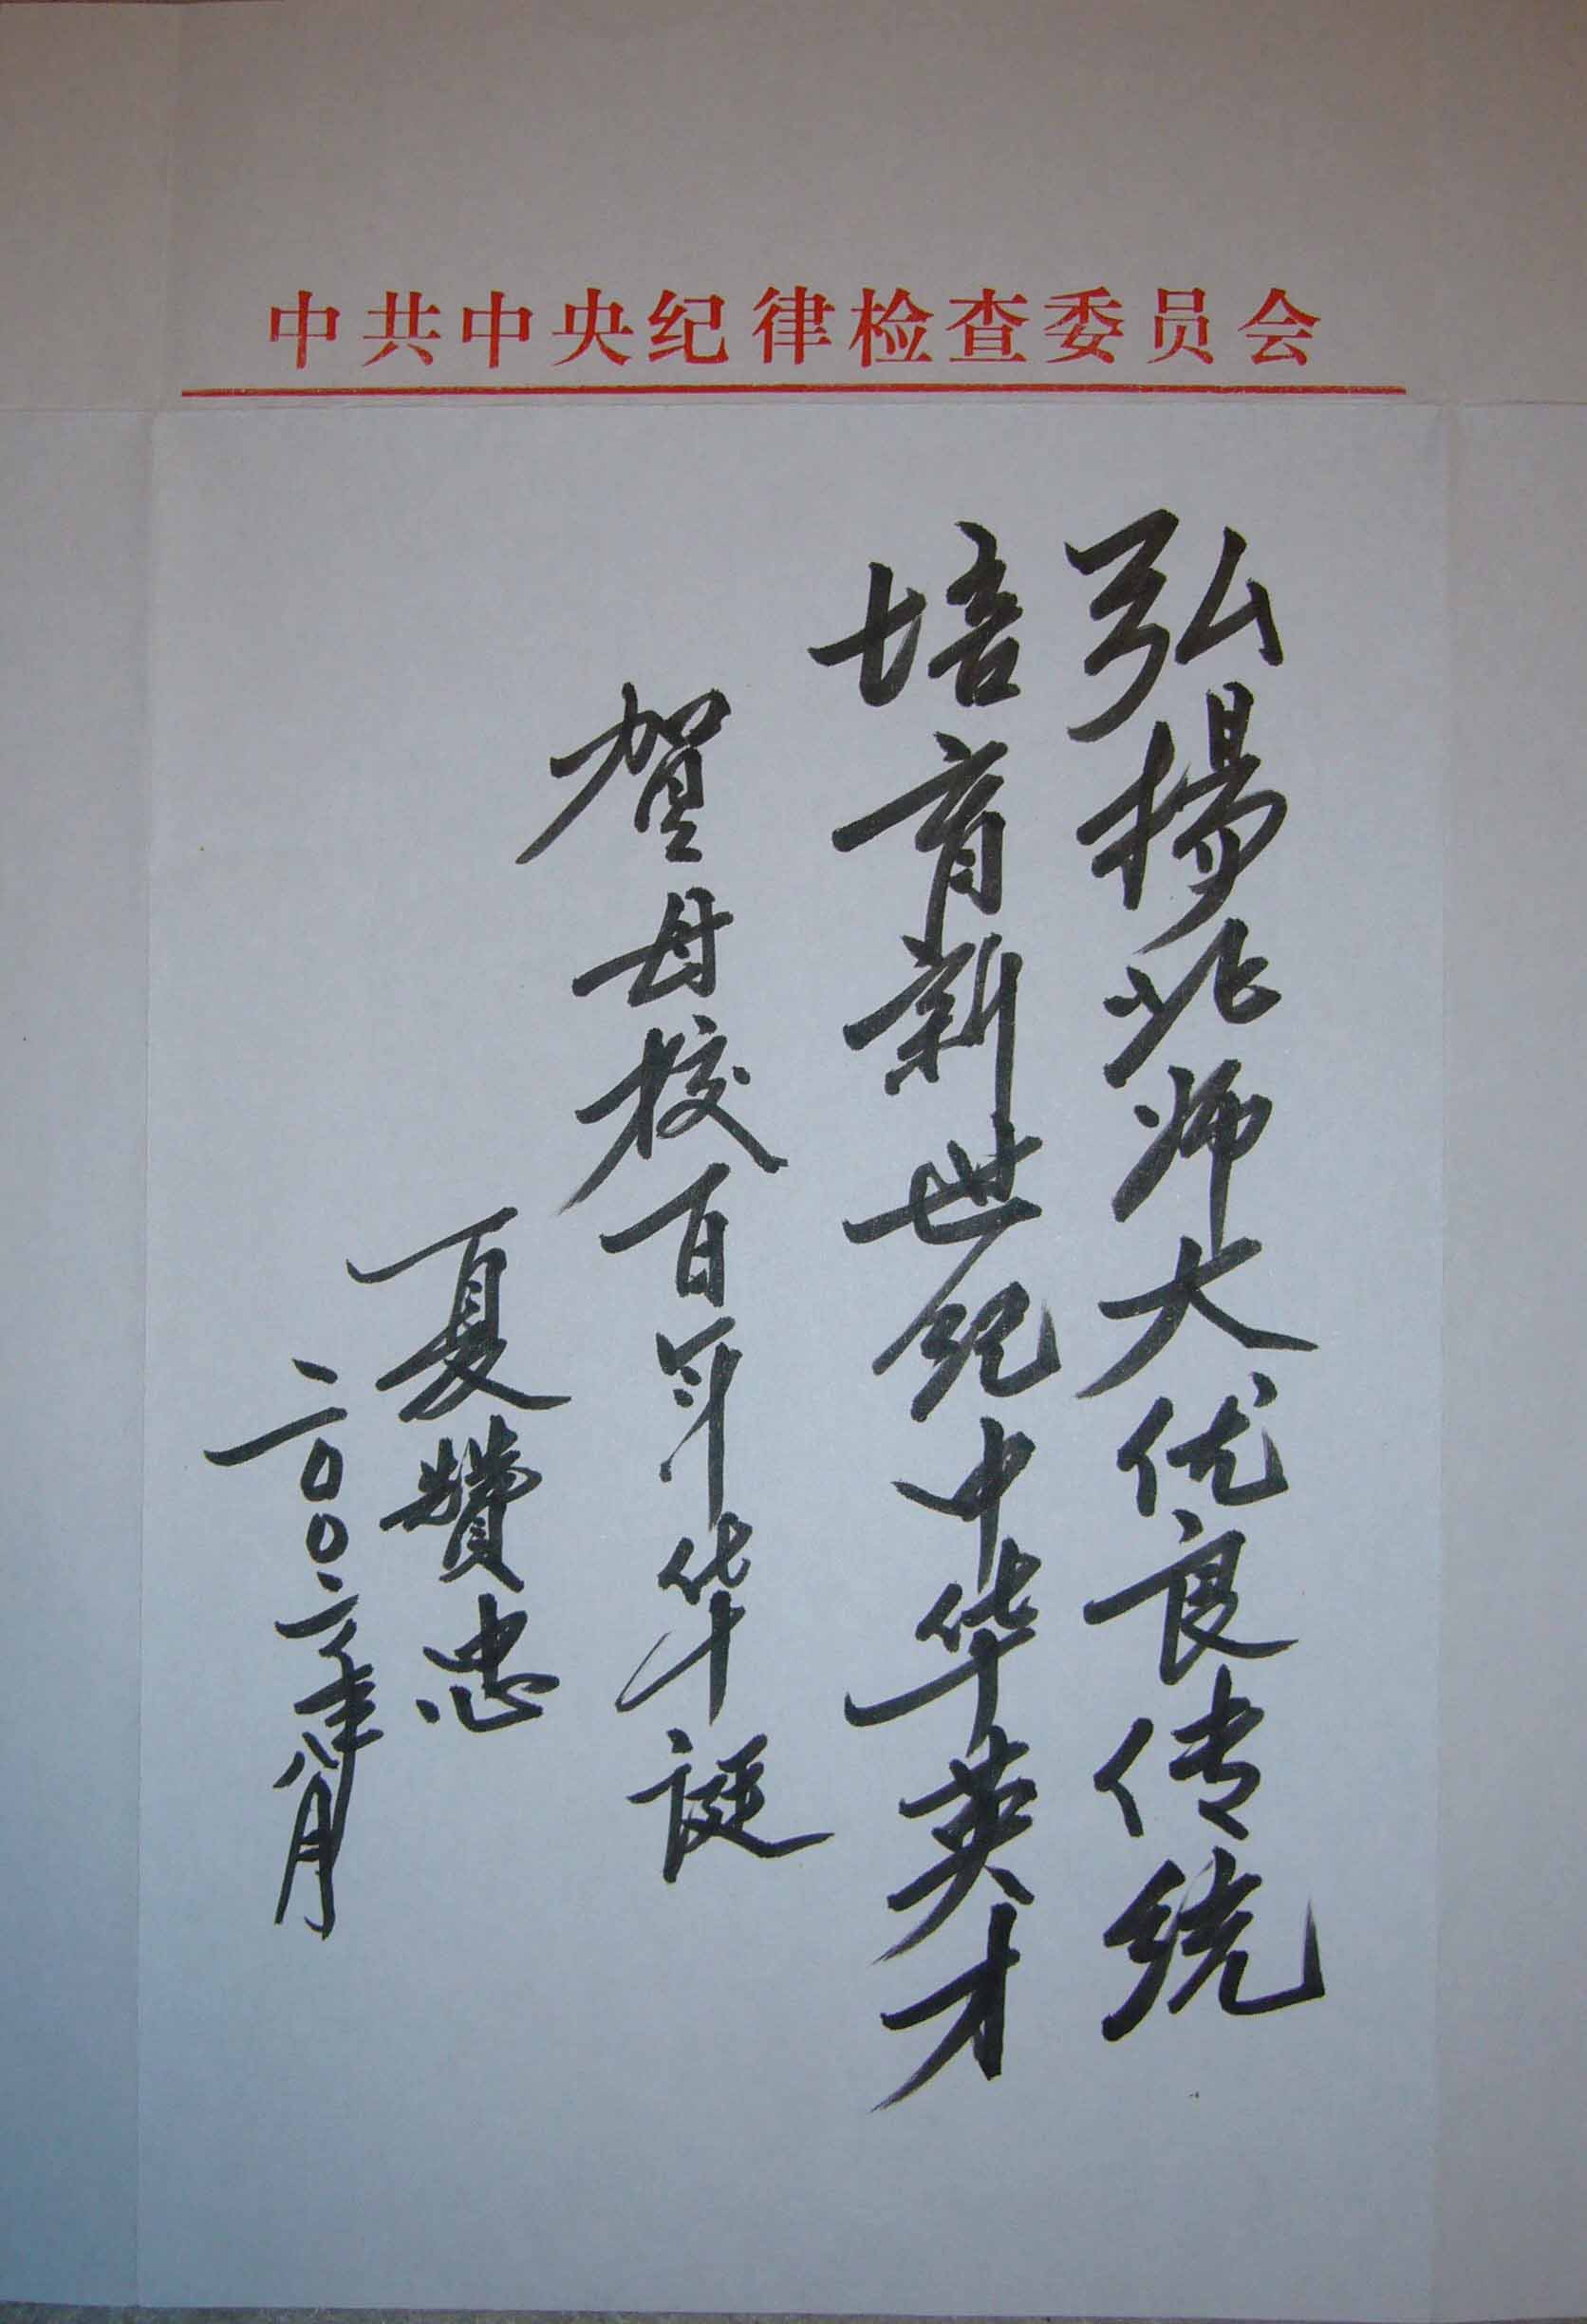 中共中央纪律检查委员会
弘揚北师大优良传统
培育新世纪中华英才
贺母校百年华诞
夏贊忠
二〇〇二年八月